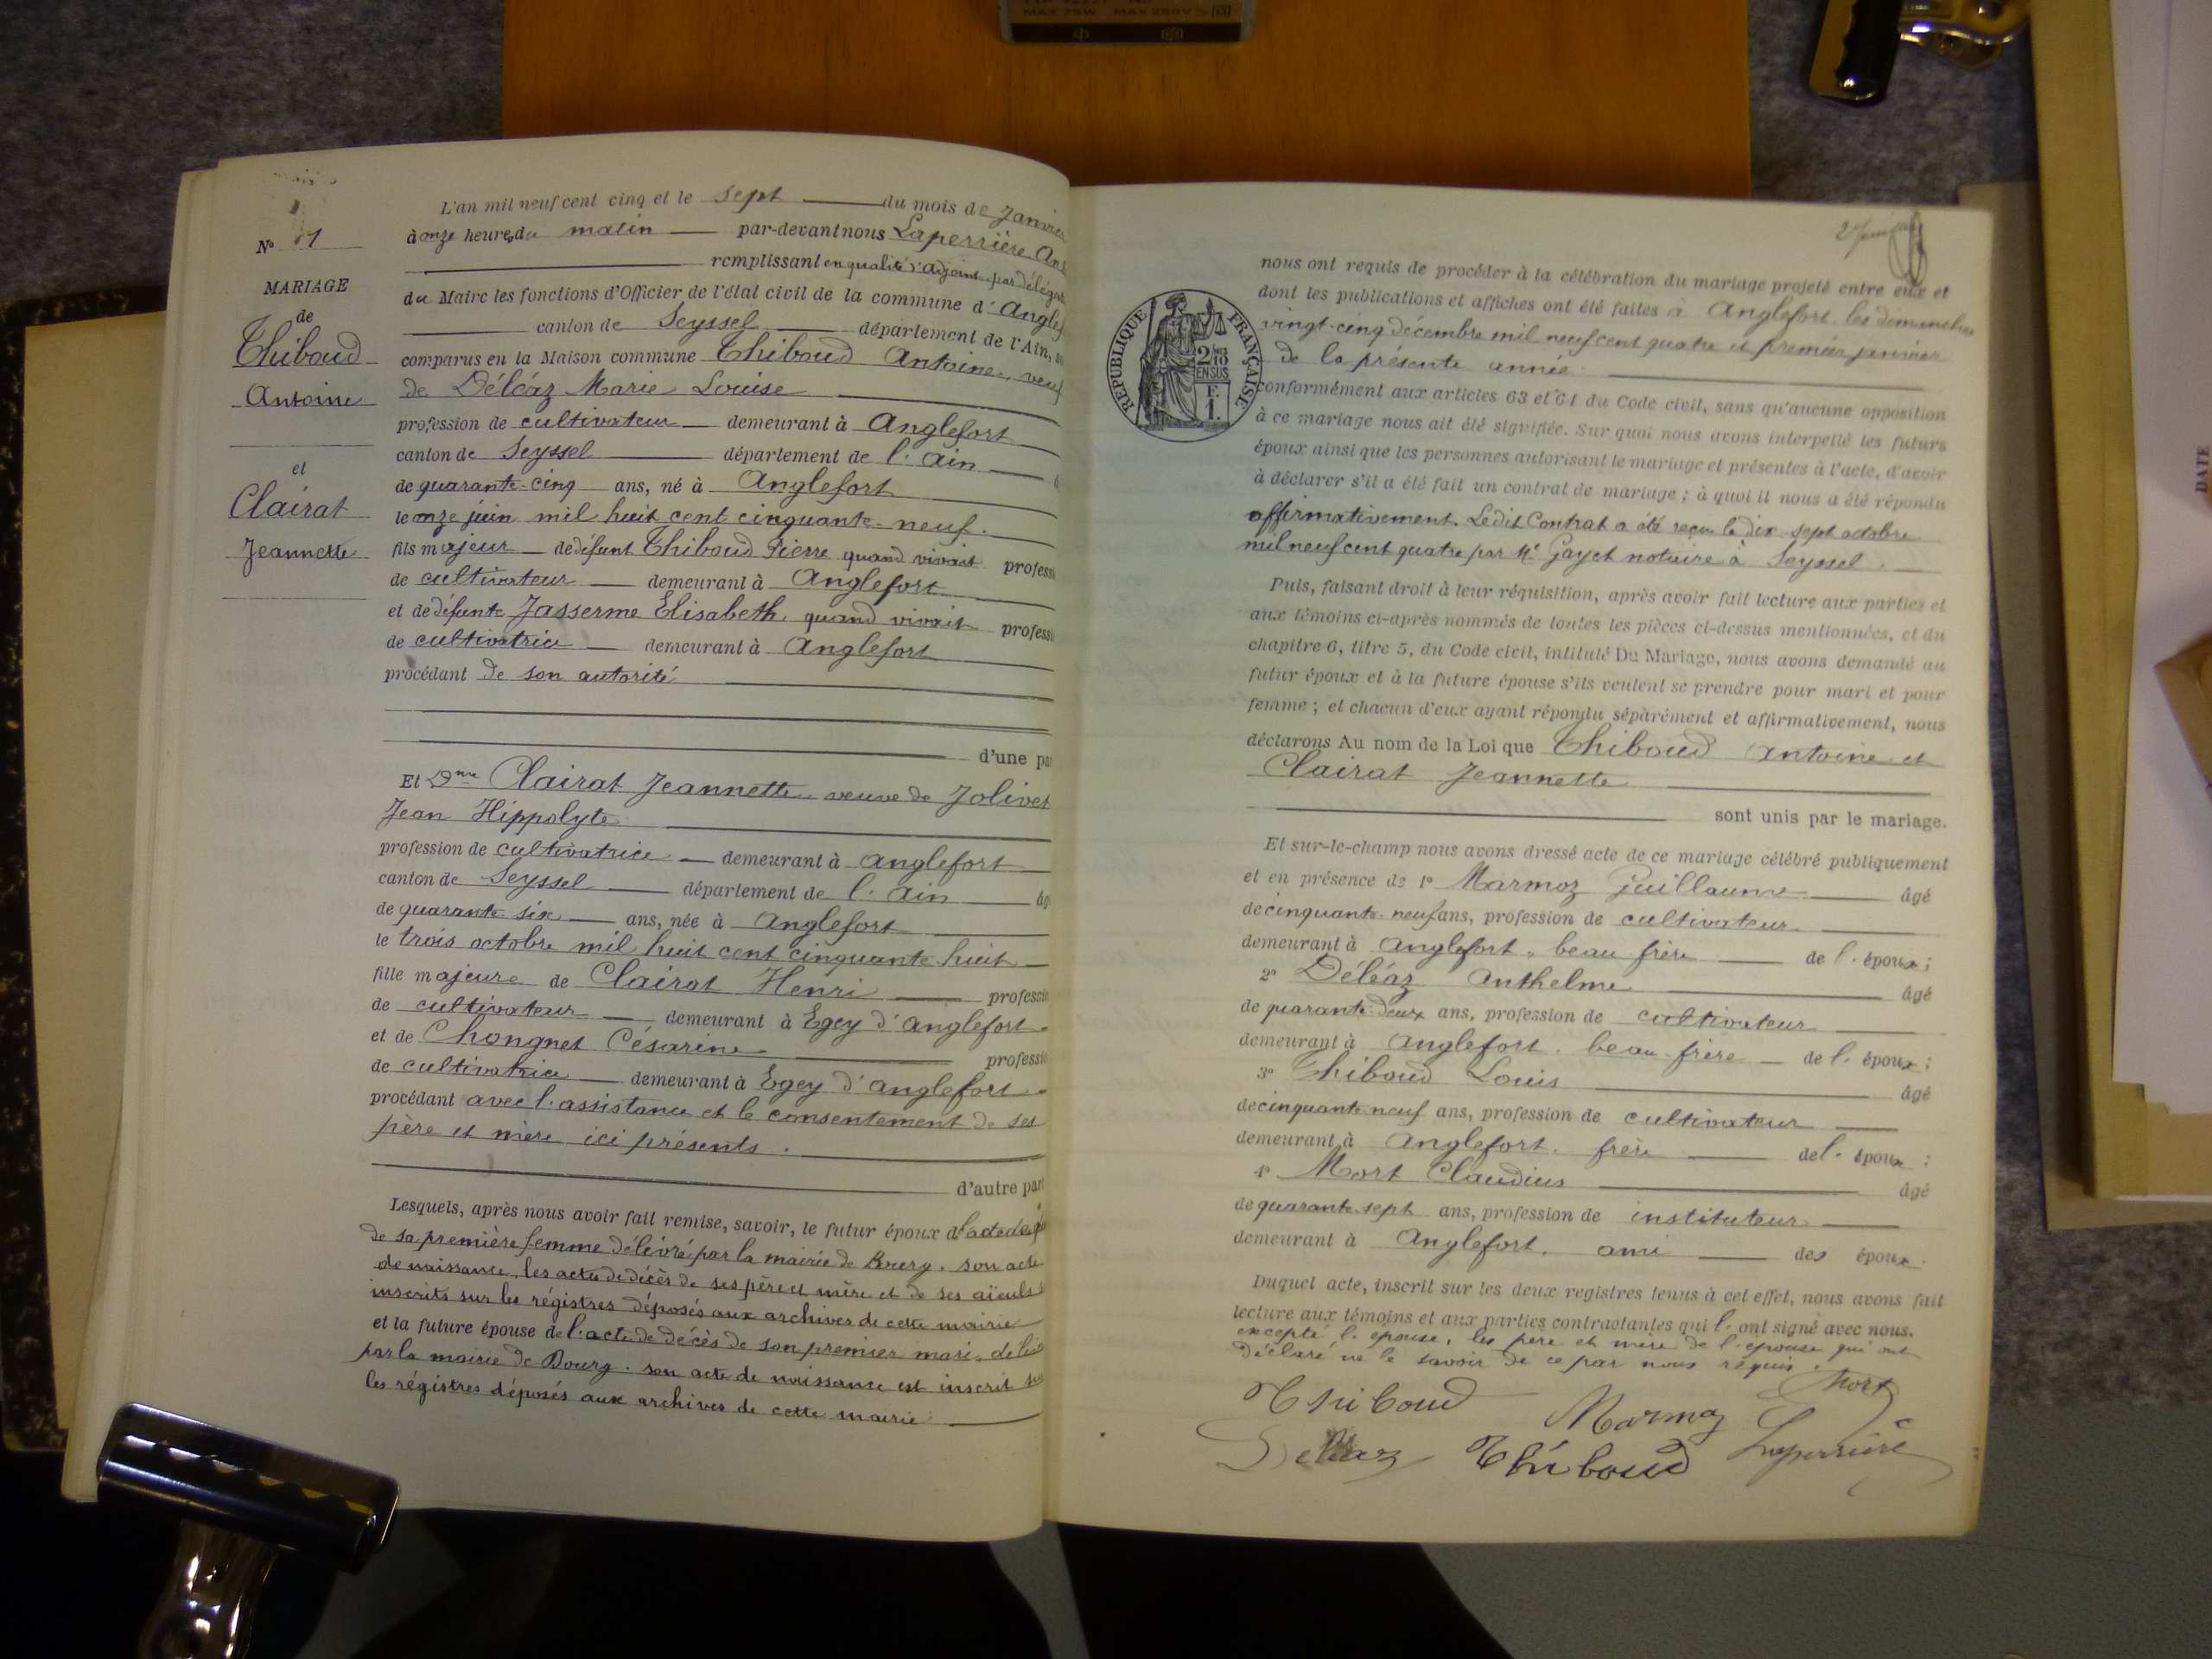 L'an mil neuf cent cinq et le sept du mois de Janvier
à onze heures du matin par-devant nous Laperrière
remplissant en qualité d'adjoint par
du Maire les fonctions d'Officier de l'état civil de la commune d'
canton de Seyssel département de l'Ain,
comparus en la Maison commune Thiboud Antoine, veuf
de Déléaz Marie Louise
profession de cultivateur demeurant à Anglefort
canton de Seyssel département de l'Ain
de quarante-cinq ans, né à Anglefort
le onze juin mil huit cent cinquante-neuf.
fils majeur de défunt Thiboud Pierre quand vivait
de cultivateur demeurant à Anglefort
et de défunte Jasserme Elisabeth quand vivait
de cultivatrice demeurant à Anglefort
procédant de son autorité
d'une
Nº 1
MARIAGE
de
Thiboud
Antoine
et
Clairat
Jeannette
Et Dme Clairat Jeannette veuve de Jolivet
Jean Hippolyte
profession de cultivatrice demeurant à Anglefort
canton de Seyssel département de l'Ain
de quarante six ans, née à Anglefort
le trois octobre mil huit cent cinquante-huit
fille majeure de Clairat Henri
de cultivateur demeurant à Egey d'Anglefort
et de Chongnet Césarine
de cultivatrice demeurant à Egey d'Anglefort
procédant avec l'assistance et le consentement de ses
père et mère ici présents.
d'autre part
Lesquels, après nous avoir fait remise, savoir, le futur époux de l'acte de
de sa première femme délivré par la mairie de Bourg. son acte
de naissance, les actes de décès de ses père et mère et de ses aïeuls
inscrits sur les régistres déposés aux archives de cette mairie
et la future épouse de l'acte de décès de son premier mari,
par la mairie de Bourg. son acte de naissance est inscrit
les régistres déposés aux archives de cette mairie
nous ont requis de procéder à la célébration du mariage projeté entre eux et
dont les publications et affiches ont été faites à Anglefort les dimanches
vingt-cinq décembre mil neuf cent quatre et premier janvier
de la présente année
RÉPUBLIQUE FRANÇAISE
conformément aux articles 63 et 64 du Code civil, sans qu'aucune opposition
à ce mariage nous ait été signifiée. Sur quoi nous avons interpellé les futurs
époux ainsi que les personnes autorisant le mariage et présentes à l'acte, d'avoir
à déclarer s'il a été fait un contrat de mariage ; à quoi il nous a été répondu
affirmativement. Ledit Contrat a été reçu le dix-sept octobre
mil neuf cent quatre par Me Gayet notaire à Seyssel.
Puis, faisant droit à leur réquisition, après avoir fait lecture aux parties et
aux témoins ci-après nommés de toutes les pièces ci-dessus mentionnées, et du
chapitre 6, titre 5, du Code civil, intitulé Du Mariage, nous avons demandé au
futur époux et à la future épouse s'ils veulent se prendre pour mari et pour
femme ; et chacun d'eux ayant répondu séparément et affirmativement, nous
déclarons Au nom de la Loi que Thiboud Antoine et
Clairat Jeannette
sont unis par le mariage.
Et sur-le-champ nous avons dressé acte de ce mariage célébré publiquement
et en présence de 1º Marmoz Guillaume âgé
de cinquante-neuf ans, profession de cultivateur
demeurant à Anglefort, beau frère de l'époux ;
2º Déléaz Anthelme âgé
de quarante-deux ans, profession de cultivateur
demeurant à Anglefort. beau-frère de l'époux ;
3º Thiboud Louis âgé
de cinquante neuf ans, profession de cultivateur
demeurant à Anglefort. frère de l'époux ;
4º Mort Claudius âgé
de quarante-sept ans, profession de instituteur
demeurant à Anglefort. ami des époux.
Duquel acte, inscrit sur les deux registres tenus à cet effet, nous avons fait
lecture aux témoins et aux parties contractantes qui l'ont signé avec nous.
excepté l'épouse, les père et mère de l'épouse qui ont
déclaré ne le savoir de ce par nous requis.
Mort
Thiboud Marmoz
Déléaz Thiboud Laperrière
DATE